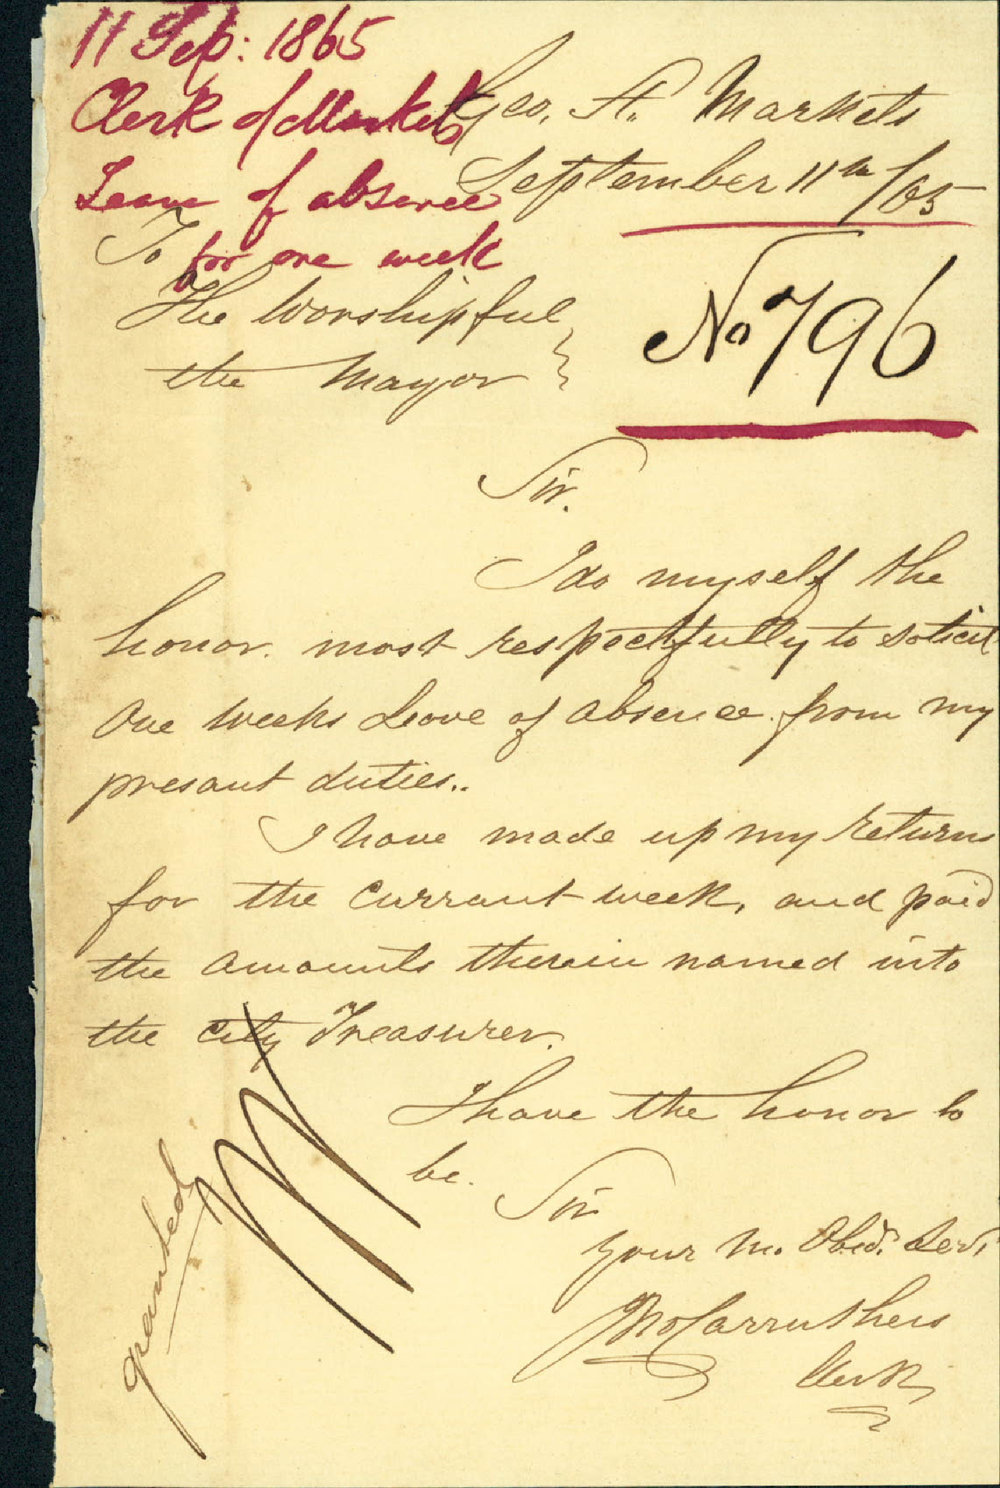 11 Sep: 1865
Clerk of Markets
Leave of absence
for one week
Geo. St. Markets
September 11th/65
No 796
To
The Worshipful
the Mayor
Sir.
I do myself the
honor. most respectfully to solicit
One weeks Leave of absence. from my
presant duties..
I have made up my returns
for the currant week, and paid
the amounts therein named into
the City Treasurer.
I have the honor to
be.
Sir
Your M. Obed. Servt
Jno Carruthers
Clerk
granted